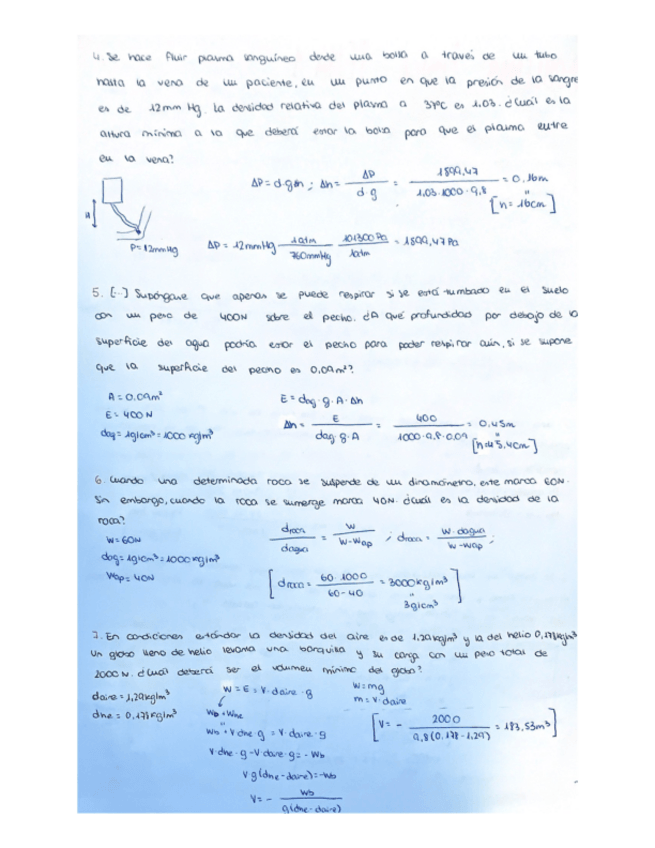 4. Se hace fluir plasma sanguíneo desde una bolsa a través de un tubo
hasta la vena de un paciente, en un punto en que la presión de la sangre
es de 12mm Hg. La densidad relativa del plasma a 37ºC es 1.03. ¿Cuál es la
altura mínima a la que deberá estar la bolsa para que el plasma entre
en la vena?
ΔP = d·g·Δh ; Δh = ΔP / d·g = 1599,47 / 1,03·1000·9,8 = 0,16m
[h = 16cm]
H
P = 12mmHg
ΔP = 12mmHg 1atm / 760mmHg 101300Pa / 1atm = 1599,47Pa
5. [...] Supóngase que apenas se puede respirar si se está tumbado en el suelo
con un peso de 400N sobre el pecho. ¿A qué profundidad por debajo de la
superficie del agua podría estar el pecho para poder respirar aún, si se supone
que la superficie del pecho es 0,09m²?
A = 0,09m²
E = dag·g·A·Δh
E = 400N
Δh = E / dag·g·A = 400 / 1000·9,8·0,09 = 0,45m
dag = 1g/cm³ = 1000kg/m³
6. Cuando una determinada roca se suspende de un dinamómetro, este marca 60N.
Sin embargo, cuando la roca se sumerge marca 40N. ¿Cuál es la densidad de la
roca?
W = 60N
droca / dagua = W / W-Wap ; droca = W·dagua / W-Wap ;
dag = 1g/cm³ = 1000kg/m³
Wap = 40N
[droca = 60·1000 / 60-40 = 3000kg/m³]
3g/cm³
7. En condiciones estándar la densidad del aire es de 1,29kg/m³ y la del helio 0,178kg/m³
Un globo lleno de helio levanta una barquilla y su carga con un peso total de
2000N. ¿Cuál deberá ser el volumen mínimo del globo?
daire = 1,29kg/m³
W = E = V·daire·g
W = mg
m = V·daire
dhe = 0,178kg/m³
Wb + Whe
[V = - 2000 / 9,8(0,178-1,29) = 183,53m³]
Wb + V·dhe·g = V·daire·g
V·dhe·g - V·daire·g = -Wb
Vg(dhe-daire) = -Wb
V = - Wb / g(dhe-daire)